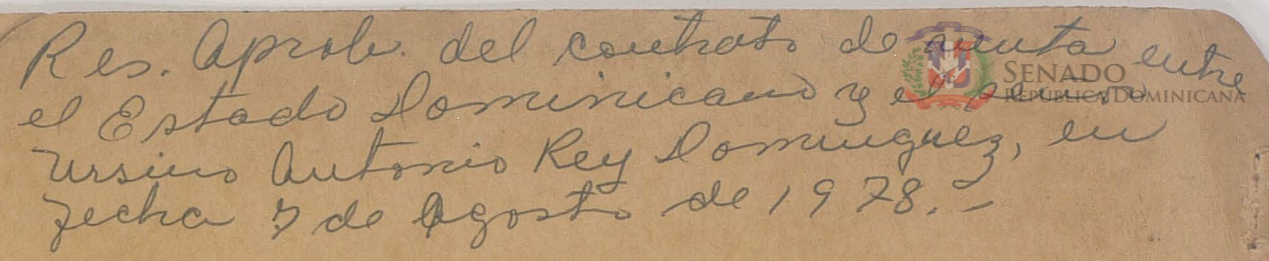 Res. Aprob. del contrato de venta entre
el Estado Dominicano y el
Ursino Antonio Rey Dominguez, en
fecha 7 de Agosto de 1978.-
SENADO
REPÚBLICA DOMINICANA